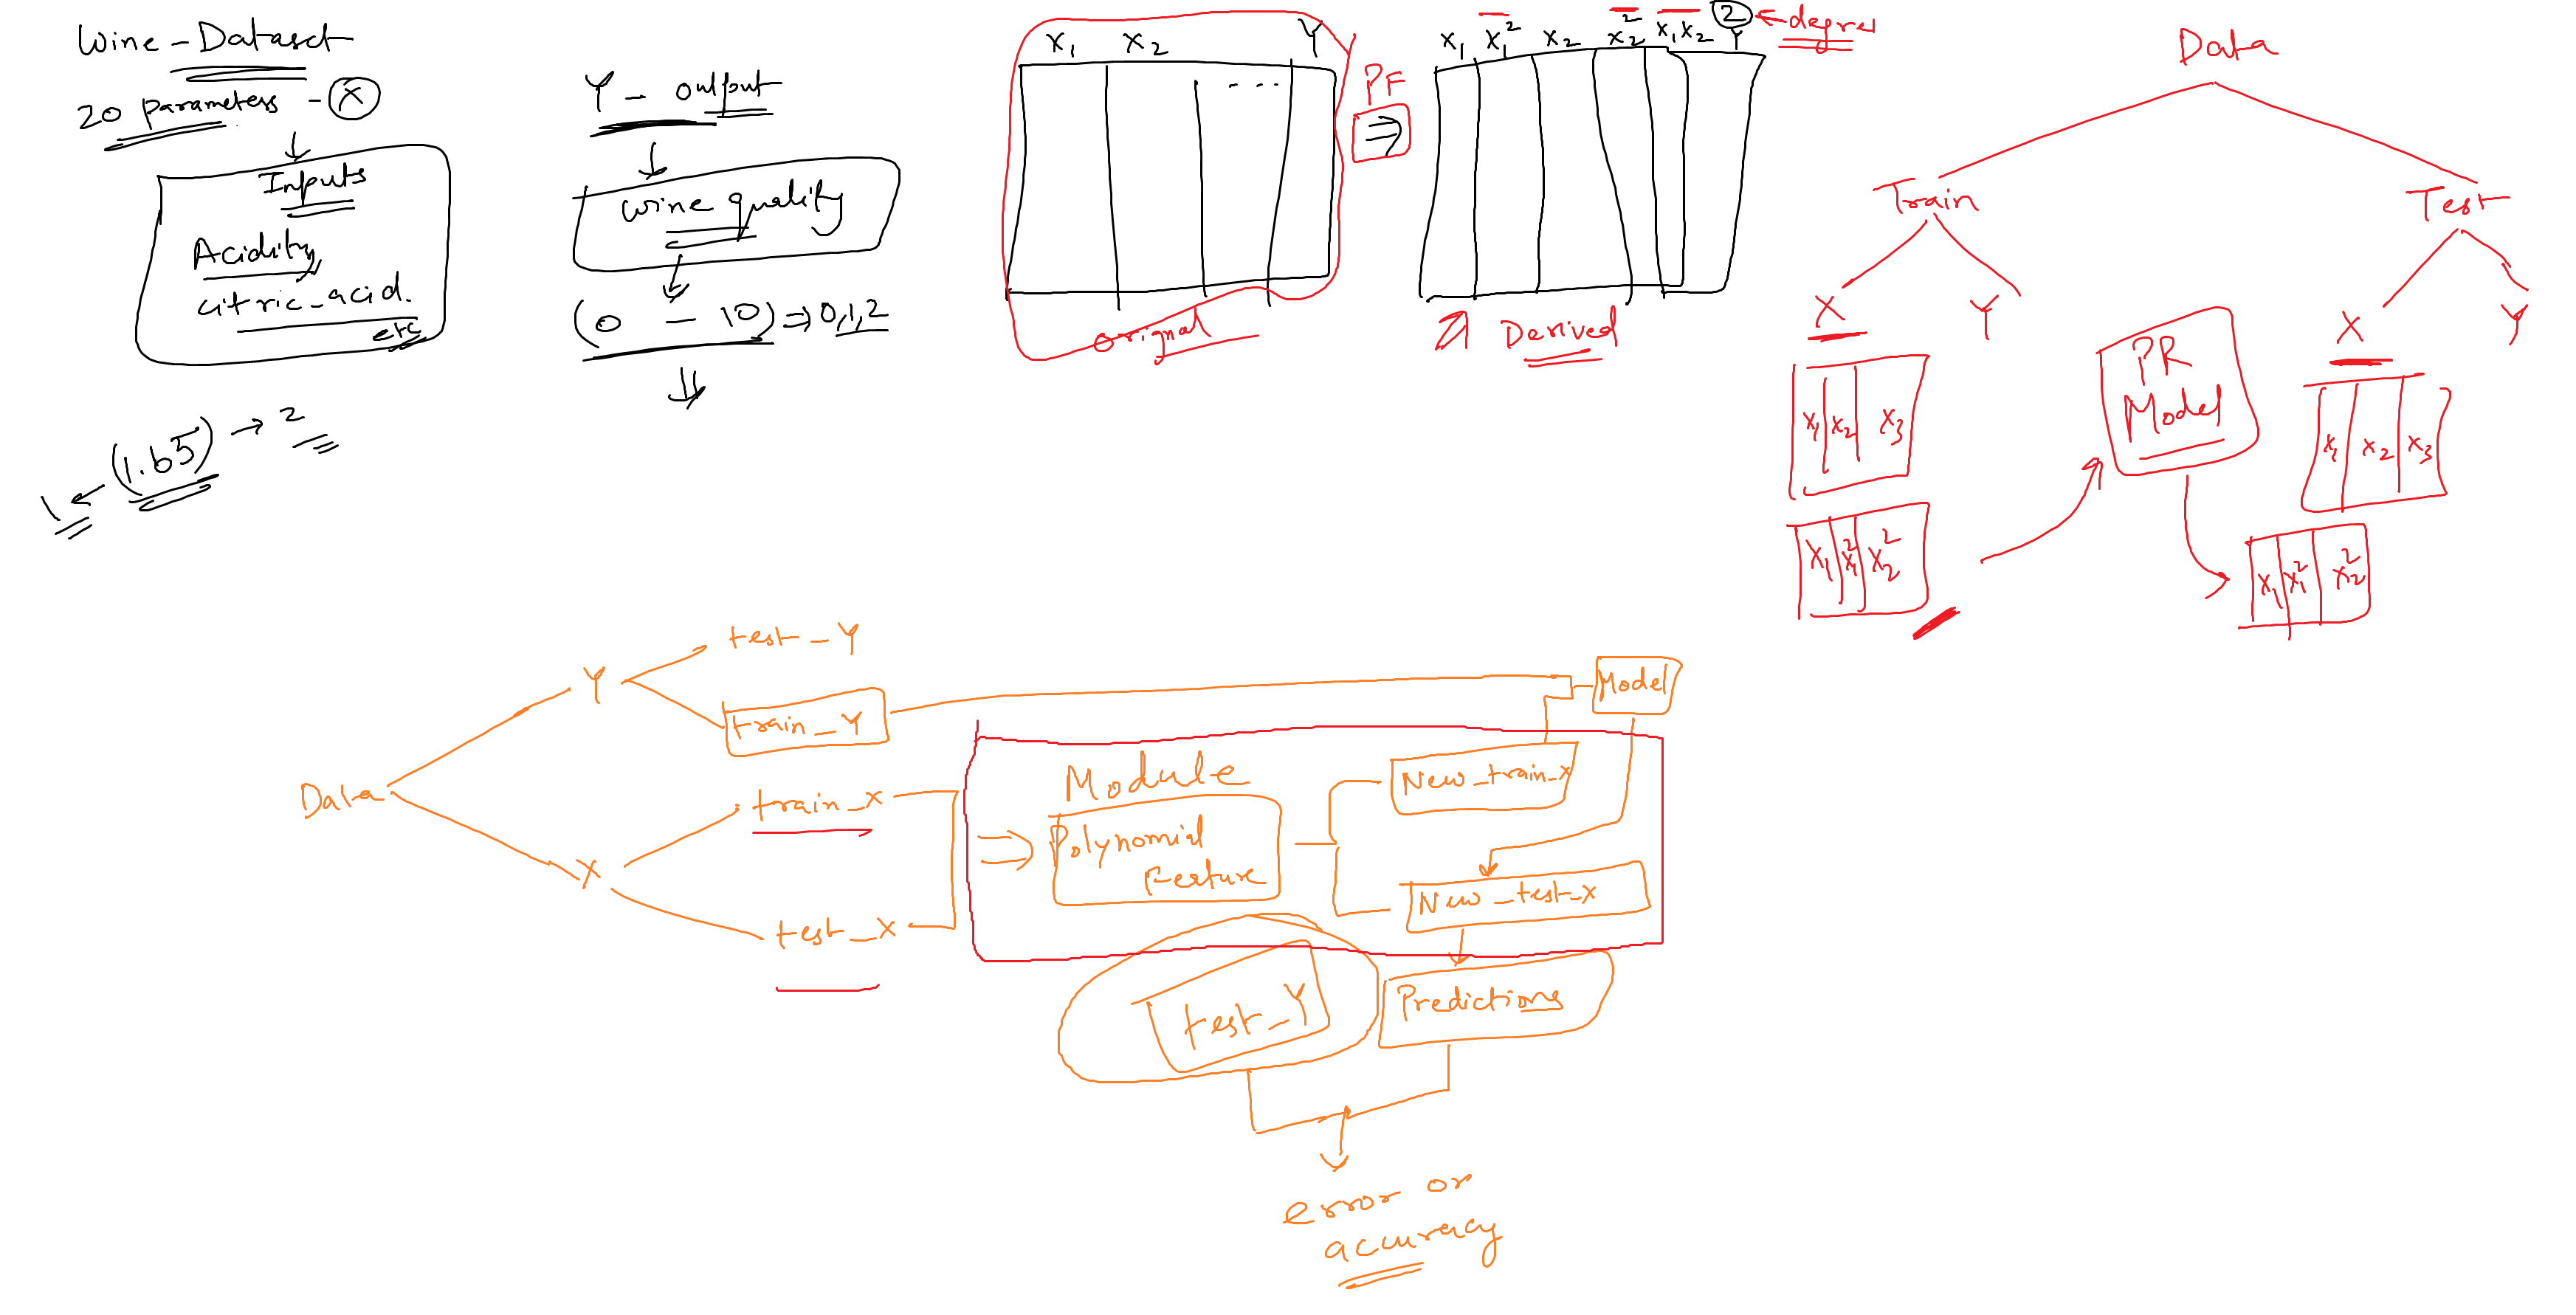 Wine - Dataset
20 parameters - X
Inputs
Acidity
citric_acid.
etc
1 ← (1.65) → 2
Y - output
wine quality
(0 - 10) ⇒ 0,1,2
x₁ x₂ Y
...
orignal
PF
⇒
x₁ x₁² x₂ x₂² x₁x₂ Y
2 ← degree
Derived
Data
Train Test
X Y
X Y
x₁ x₂ x₃
x₁ x₁² x₂²
PR
Model
x₁ x₂ x₃
x₁ x₁² x₂²
Data
Y
X
test_Y
train_Y
train_x
test_x
Module
Polynomial
Feature
New_train_x
New_test_x
Model
test_Y
Predictions
error or
accuracy